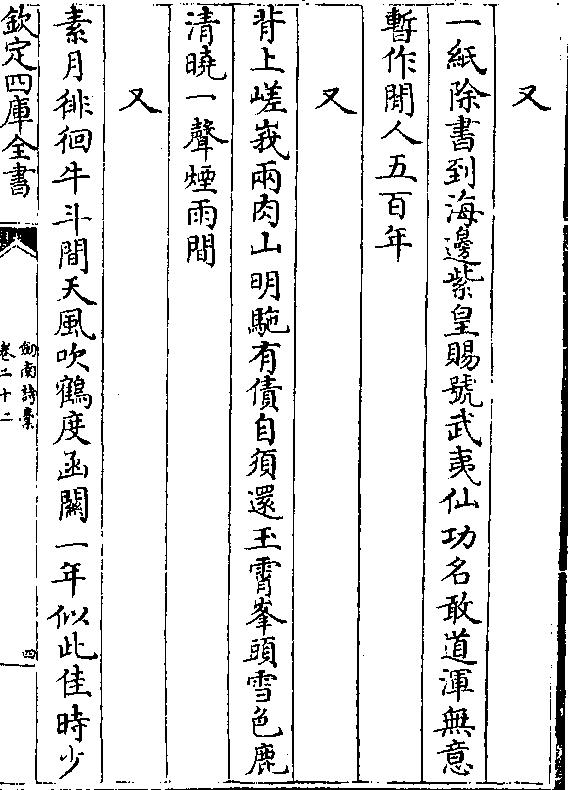 又
一紙除書到海邊紫皇賜號武夷仙功名敢道渾無意
暫作閒人五百年
又
背上嵯峩兩肉山明駞有債自須還玉霄峯頭雪色鹿
清曉一聲煙雨間
又
素月徘徊牛斗間天風吹鶴度函關一年似此佳時少
欽定四庫全書
劍南詩藁
卷二十二
四